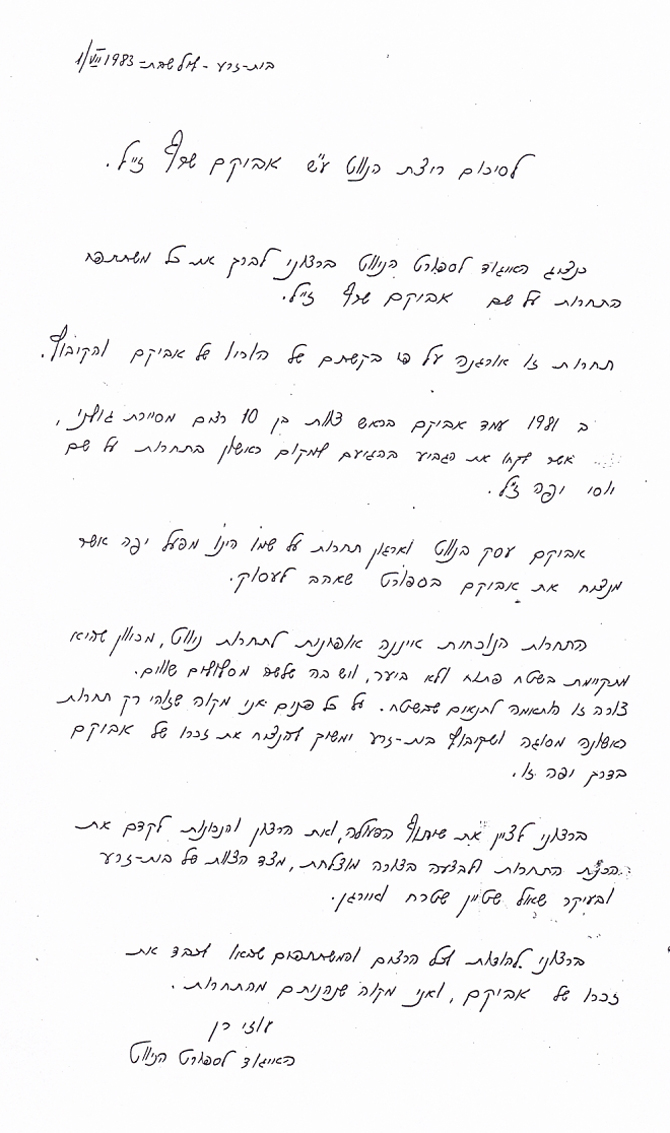 בית-זרע - ליל שבת - 1/VII 1983
לסיכום ריצת הניווט ע"ש אביקם שרף ז"ל.
כנציג האיגוד לספורט הניווט ברצוני לברך את כל משתתפי
התחרות על שם אביקם שרף ז"ל.
תחרות זו אורגנה על פי בקשתם של הוריו של אביקם והקיבוץ.
ב 1981 עמד אביקם בראש צוות בן 10 רצים מסיירת גולני,
אשר לקחו את הגביע בהגיעם למקום ראשון בתחרות על שם
יוסי יפה ז"ל.
אביקם עסק בניווט וארגון תחרות על שמו הינו מפעל יפה אשר
מנציח את אביקם בספורט שאהב לעסוק.
התחרות הנוכחית איננה אופיינית לתחרות ניווט, מכיוון שהיא
מתקיימת בשטח פתוח ולא ביער, ויש בה שלשה מסלולים שווים.
צורה זו הותאמה לתנאים שבשטח. על כל פנים אני מקוה שזוהי רק תחרות
ראשונה מסוגה ושקיבוץ בית-זרע ימשיך להנציח את זכרו של אביקם
בדרך יפה זו.
ברצוני לציין את שיתוף הפעולה, ואת הרצון והנכונות לקדם את
הכנת התחרות ולבצעה בצורה מוצלחת, מצד הצוות של בית-זרע
ובעיקר שאול שטיין שטרח ואירגן.
ברצוני להודות לכל הרצים והמשתתפים שבאו לכבד את
זכרו של אביקם, ואני מקוה שנהניתם מהתחרות.
עוזי רן
האיגוד לספורט הניווט